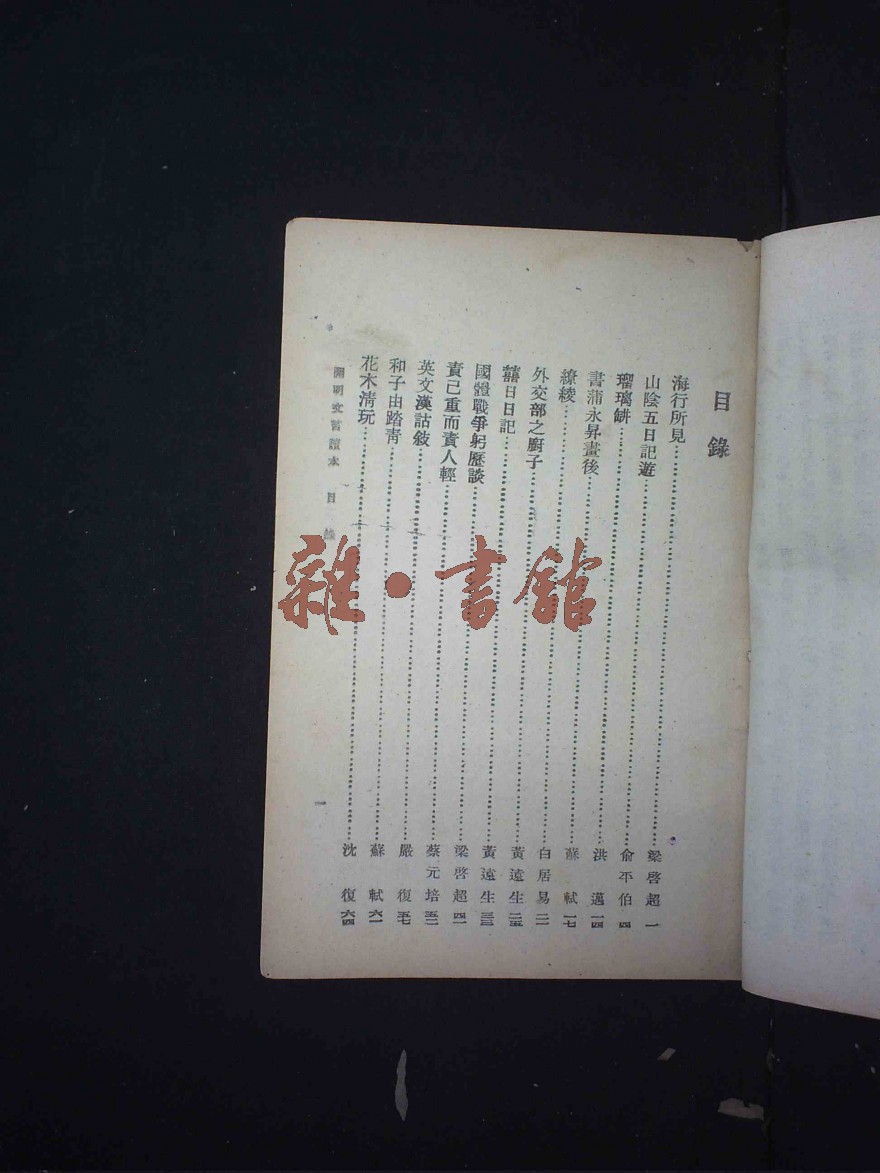 目錄
海行所見……梁啓超 一
山陰五日記遊……俞平伯 四
瑠璃缾……洪邁 一四
書蒲永昇畫後……蘇軾 一七
繚綾……白居易 二一
外交部之廚子……黃遠生 二五
囍日日記……黃遠生 三三
國體戰爭躬歷談……梁啓超 四一
責己重而責人輕……蔡元培 五二
英文漢詁敍……嚴復 五七
和子由踏靑……蘇軾 六一
花木淸玩……沈復 六四
開明文言讀本 目錄 一
雜·書館